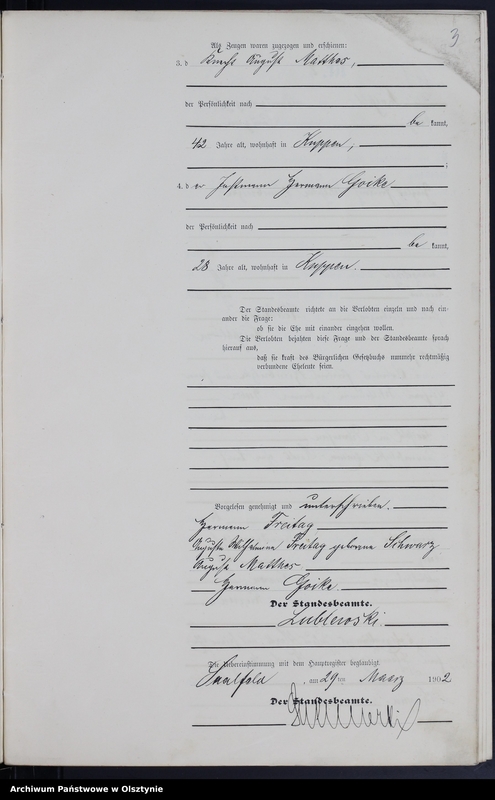 3
Als Zeugen waren zugezogen und erschienen:
3. d Knecht August Matthes,
der Persönlichkeit nach
be kannt,
42 Jahre alt, wohnhaft in Kuppen,
;
4. d er Instmann Hermann Goike
der Persönlichkeit nach
be kannt,
28 Jahre alt, wohnhaft in Kuppen.
Der Standesbeamte richtete an die Verlobten einzeln und nach ein-
ander die Frage:
ob sie die Ehe mit einander eingehen wollen.
Die Verlobten bejahten diese Frage und der Standesbeamte sprach
hierauf aus,
daß sie kraft des Bürgerlichen Gesetzbuchs nunmehr rechtmäßig
verbundene Eheleute seien.
Vorgelesen genehmigt und unterschrieben.
Hermann Freitag
Auguste Wilhelmine Freitag geborene Schwarz
August Matthes
Hermann Goike
Der Standesbeamte.
Lublewski.
Die Uebereinstimmung mit dem Hauptregister beglaubigt.
Saalfeld, am 29 ten Maerz 1902
Der Standesbeamte.
Archiwum Państwowe w Olsztynie